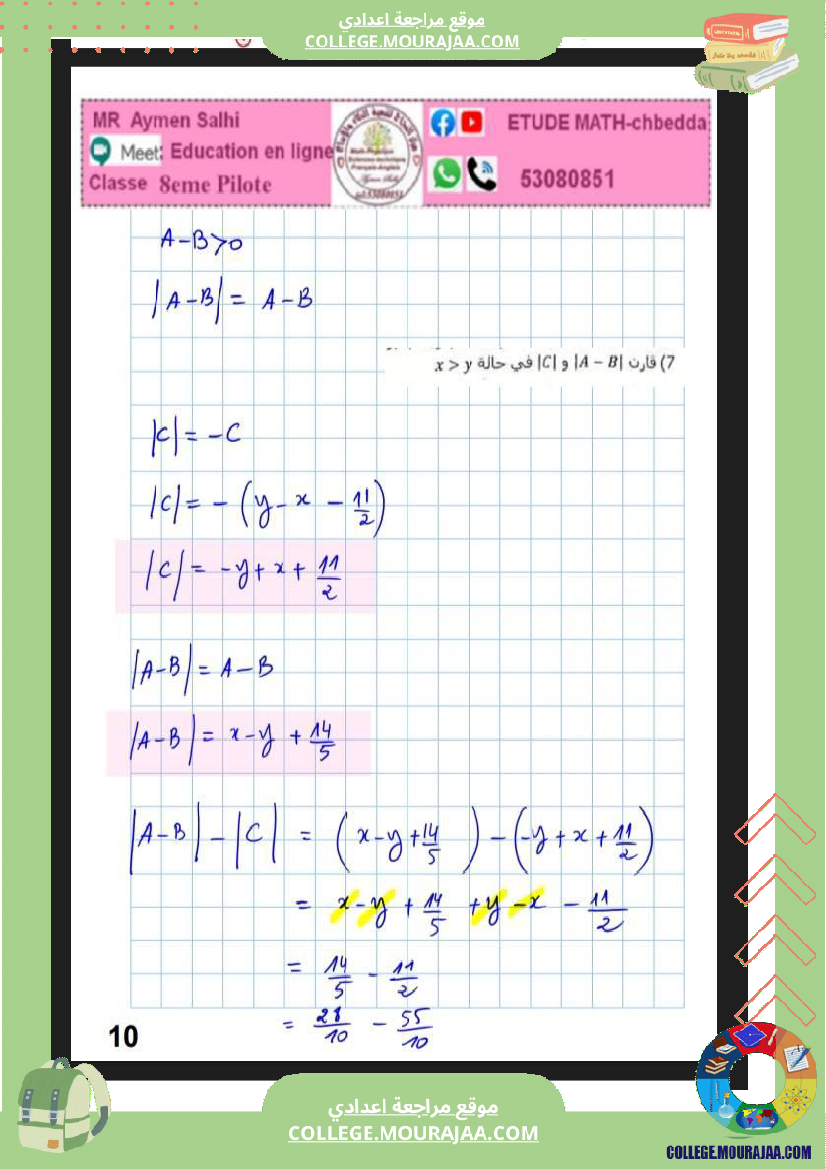 موقع مراجعة اعدادي
COLLEGE.MOURAJAA.COM
MR Aymen Salhi
Meet: Education en ligne
Classe 8eme Pilote
ETUDE MATH-chbedda
53080851
A-B>0
|A-B| = A-B
7) قارن |A − B| و |C| في حالة x > y
|C| = -C
|C| = - (y - x - 11/2)
|C| = -y + x + 11/2
|A-B| = A-B
|A-B| = x-y + 14/5
|A-B| - |C| = (x-y+14/5) - (-y+x+11/2)
= x-y + 14/5 +y -x - 11/2
= 14/5 - 11/2
= 28/10 - 55/10
10
موقع مراجعة اعدادي
COLLEGE.MOURAJAA.COM
COLLEGE.MOURAJAA.COM